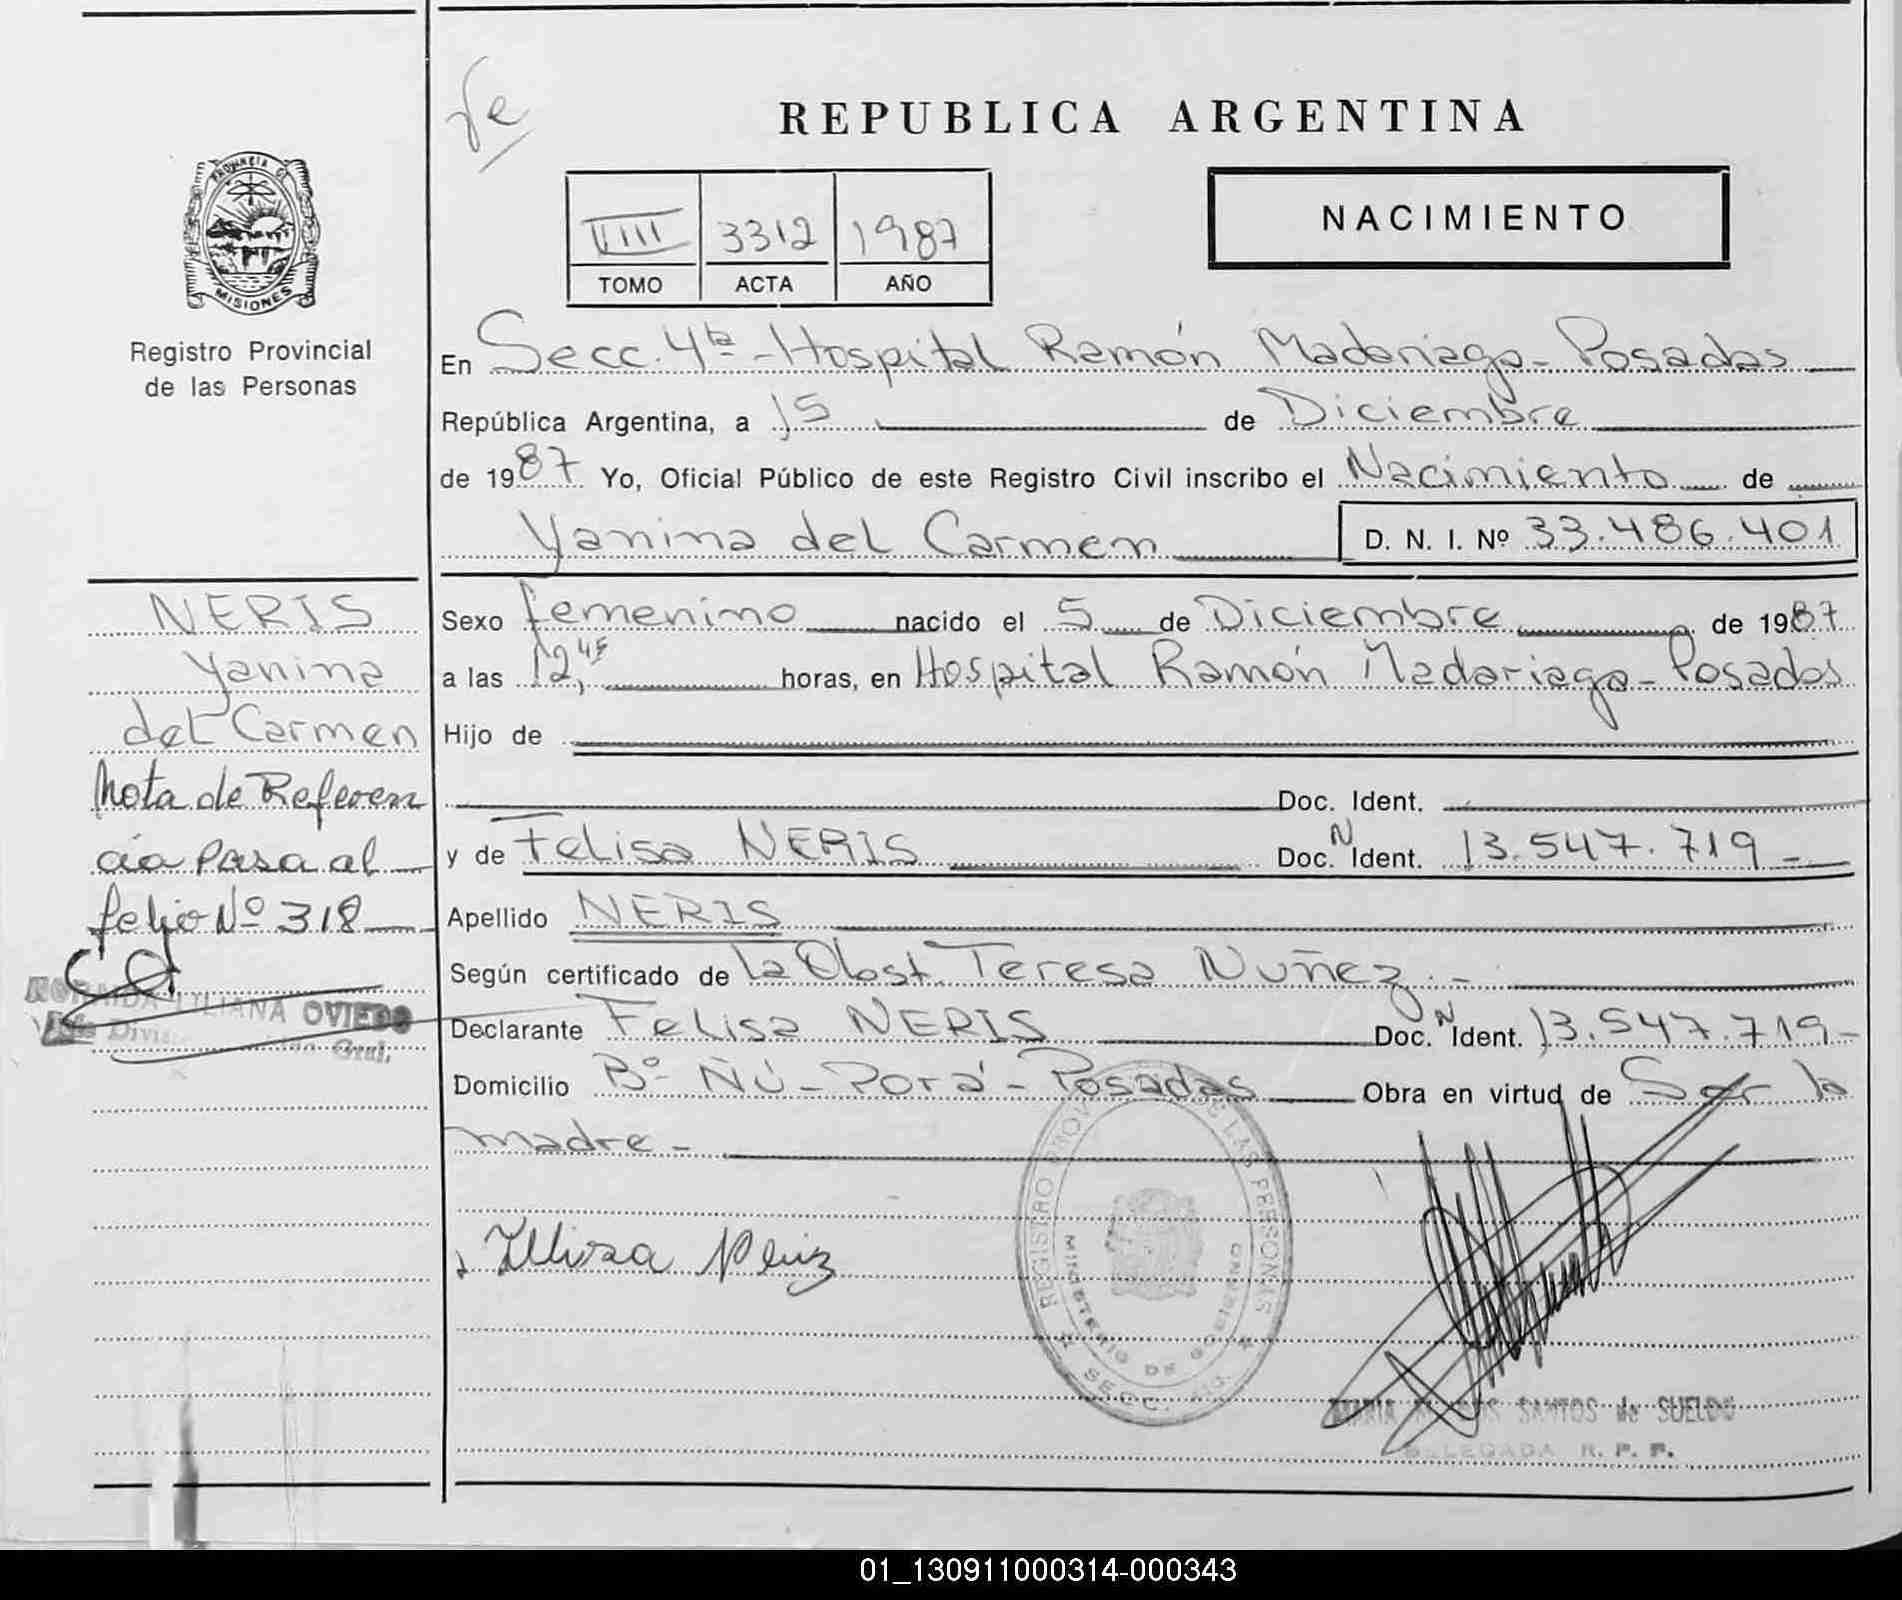 Ve
REPUBLICA ARGENTINA
NACIMIENTO
VIII 3312 1987
TOMO ACTA AÑO
PROVINCIA DE
MISIONES
Registro Provincial
de las Personas
En Secc. 4ta - Hospital Ramón Madariaga - Posadas
República Argentina, a 15 de Diciembre
de 1987 Yo, Oficial Público de este Registro Civil inscribo el Nacimiento de
Yanina del Carmen D. N. I. Nº 33.486.401
NERIS
Yanina
del Carmen
Nota de Referen
cia Pasa al
folio Nº 318
LILIANA OVIEDO
Gral.
Sexo femenino nacido el 5 de Diciembre de 1987
a las 12,45 horas, en Hospital Ramón Madariaga - Posadas
Hijo de
Doc. Ident.
y de Felisa NERIS Doc. N Ident. 13.547.719 -
Apellido NERIS
Según certificado de la Obst. Teresa Nuñez. -
Declarante Felisa NERIS Doc. N Ident. 13.547.719 -
Domicilio Bº Ñú - Porá - Posadas Obra en virtud de Ser la
madre -
REGISTRO PROV DE LAS PERSONAS
MINISTERIO DE GOBIERNO
SECC.
MARIA SANTOS de SUELDO
DELEGADA R. P. P.
01_130911000314-000343